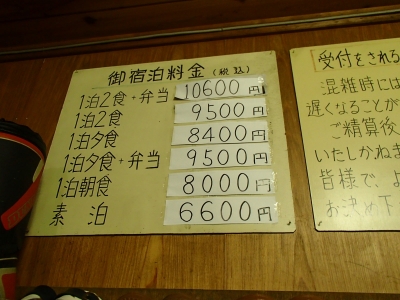 御宿泊料金(税込)
1泊2食+弁当 10600円
1泊2食 9500円
1泊夕食 8400円
1泊夕食+弁当 9500円
1泊朝食 8000円
素泊 6600円
受付をされる
混雑時には
遅くなることが
ご精算後
いたしかねま
皆様で、よ
お決め下